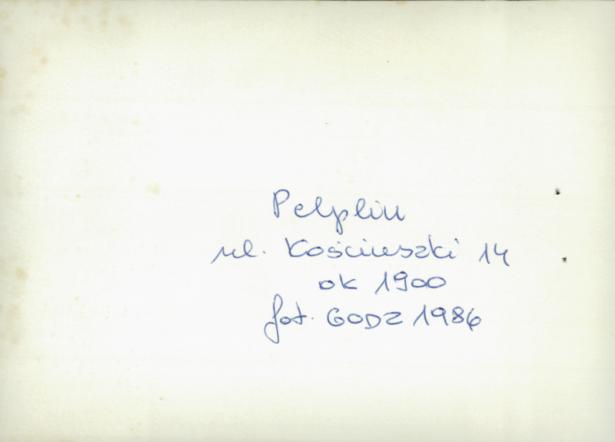 Pelplin
ul. Kościuszki 14
ok 1900
fot. GODZ 1986